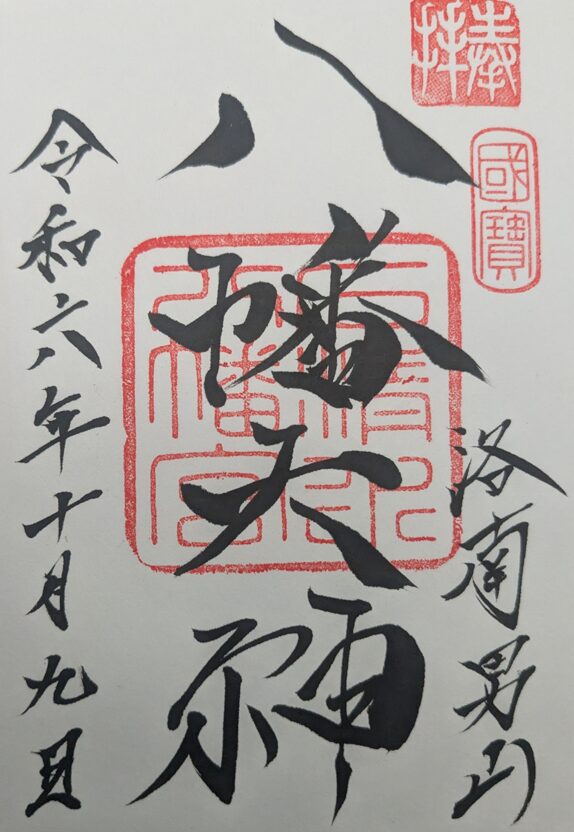 奉拝
國寶
洛南男山
八幡大神
石清水
八幡宮
令和六年十月九日